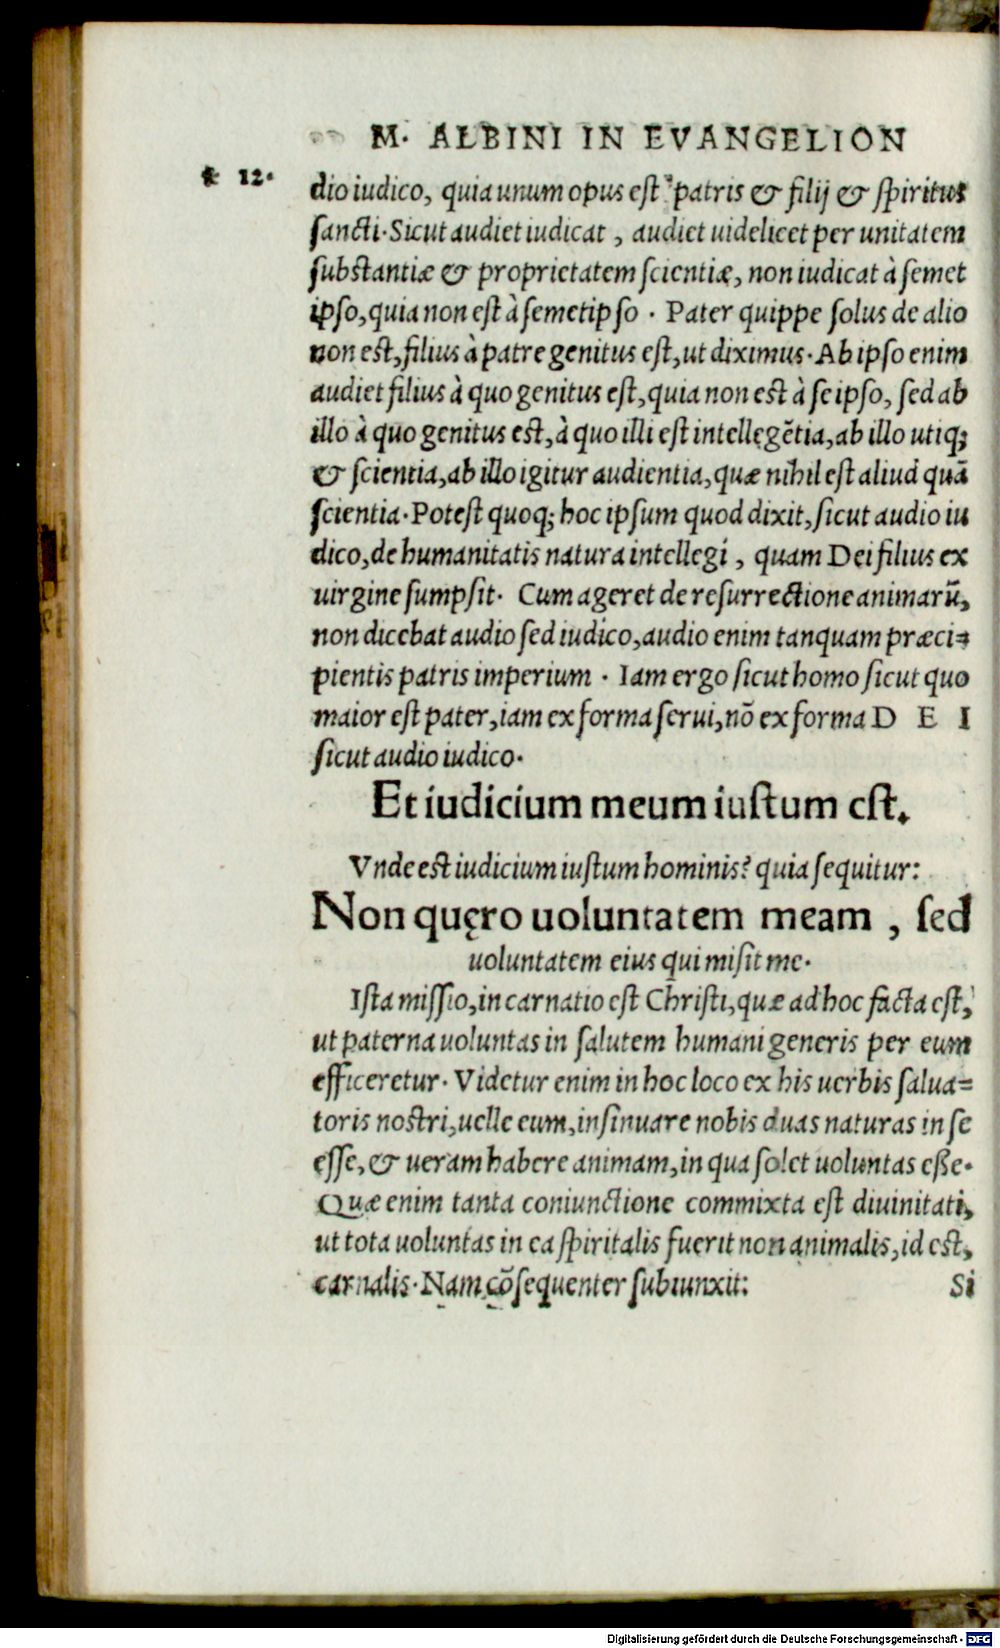 M. ALBINI IN EVANGELION
* 12.
dio iudico, quia unum opus est patris & filij & spiritus
sancti. Sicut audiet iudicat, audiet uidelicet per unitatem
substantiæ & proprietatem scientiæ, non iudicat à semet
ipso, quia non est à semetipso. Pater quippe solus de alio
non est, filius à patre genitus est, ut diximus. Ab ipso enim
audiet filius à quo genitus est, quia non est à se ipso, sed ab
illo à quo genitus est, à quo illi est intellegẽtia, ab illo utiq;
& scientia, ab illo igitur audientia, quæ nihil est aliud quã
scientia. Potest quoq; hoc ipsum quod dixit, sicut audio iu
dico, de humanitatis natura intellegi, quam Dei filius ex
uirgine sumpsit. Cum ageret de resurrectione animarũ,
non dicebat audio sed iudico, audio enim tanquam præci=
pientis patris imperium. Iam ergo sicut homo sicut quo
maior est pater, iam ex forma serui, nõ ex forma D E I
sicut audio iudico.
Et iudicium meum iustum est.
Vnde est iudicium iustum hominis? quia sequitur:
Non quęro uoluntatem meam, sed
uoluntatem eius qui misit me.
Ista missio, incarnatio est Christi, quæ ad hoc facta est,
ut paterna uoluntas in salutem humani generis per eum
efficeretur. Videtur enim in hoc loco ex his uerbis salua=
toris nostri, uelle eum, insinuare nobis duas naturas in se
esse, & ueram habere animam, in qua solet uoluntas eße.
Quæ enim tanta coniunctione commixta est diuinitati,
ut tota uoluntas in ea spiritalis fuerit non animalis, id est,
carnalis. Nam cõsequenter subiunxit:
Si
Digitalisierung gefördert durch die Deutsche Forschungsgemeinschaft - DFG